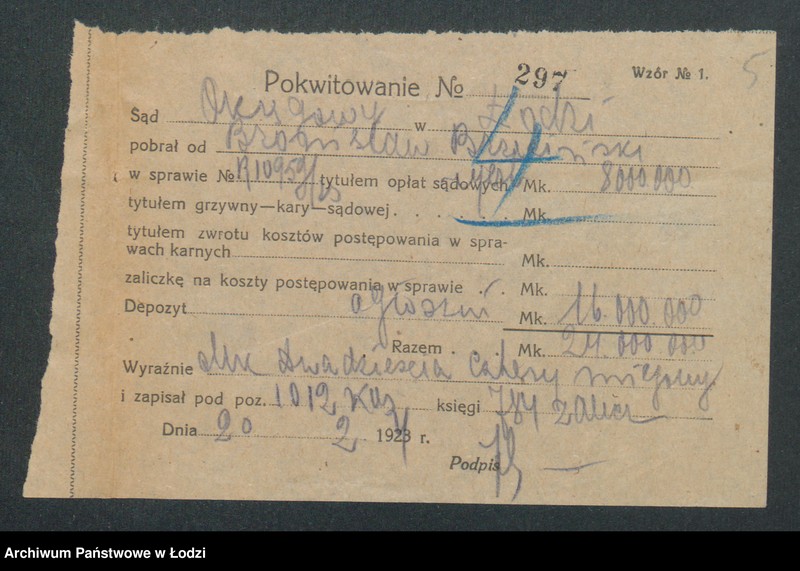 5
Pokwitowanie № 297 Wzór № 1.
Sąd Okręgowy w Łodzi
4
pobrał od Bronisław
w sprawie № R1095g/23 tytułem opłat sądowych Mk. 8000.000
tytułem grzywny—kary—sądowej Mk.
tytułem zwrotu kosztów postępowania w spra-
wach karnych Mk.
zaliczkę na koszty postępowania w sprawie Mk.
Depozyt Mk. 16.000.000
Razem Mk. 24.000.000
Wyraźnie Mk dwadzieścia cztery
i zapisał pod poz. 1012 księgi 784
Dnia 20 2 1923 r.
Podpis
Archiwum Państwowe w Łodzi